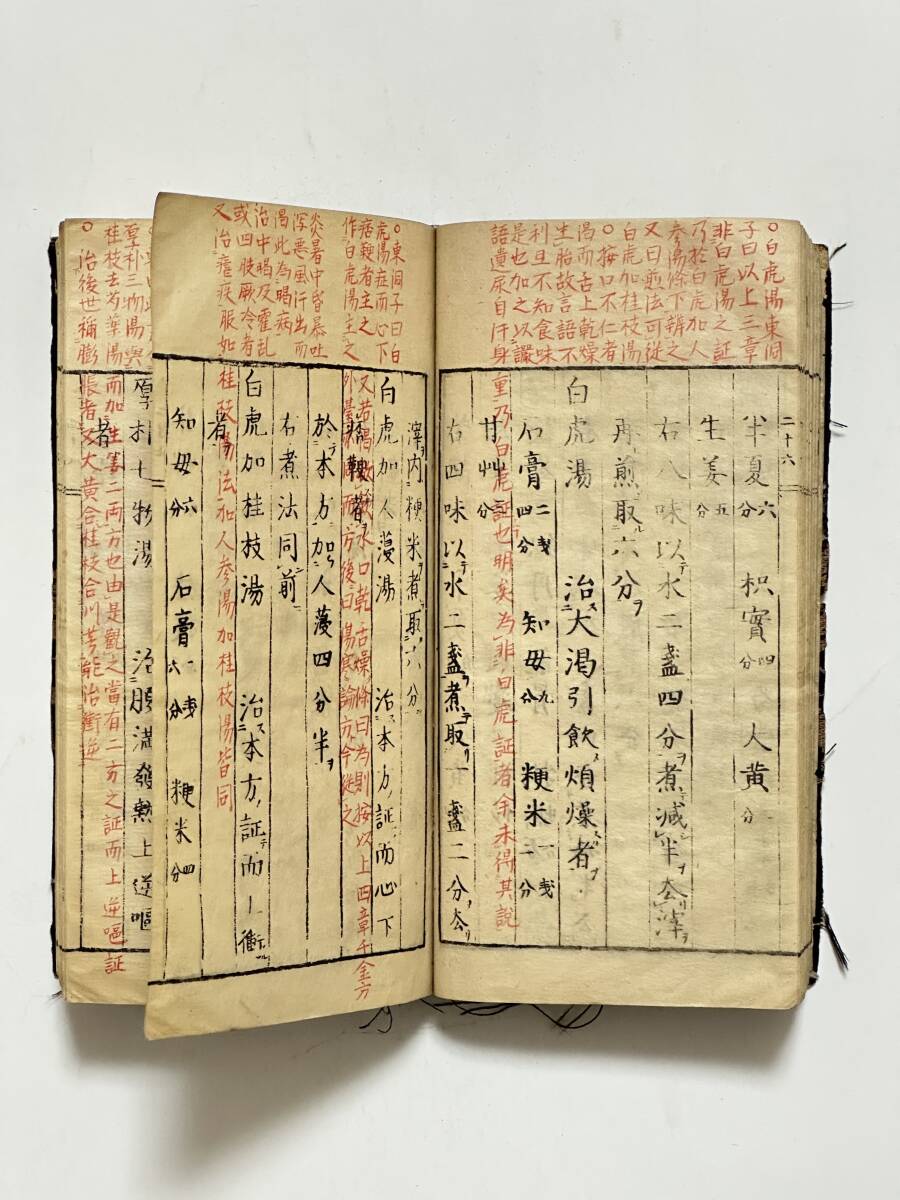 ○白虎湯東洞
子曰以上三章
非白虎湯之証
乃於白虎加人
参湯條下辨之
又曰煎法可從
白虎加桂枝湯
○按口不仁者
渇而舌上乾燥
生胎故言語不
利且不知食味
是也加之以讝
語遺尿自汗身
重乃白虎証也明矣為非白虎証者余未得其説
二十六
半夏六分 枳實四分 人黄一分
生姜五分
右八味以テ水二盞四分ヲ煮減半ヲ厺リ滓ヲ
再煎取ル六分ヲ
白虎湯 治ス大渇引飲煩燥スル者ヲ
石膏二戔四分 知母九分 粳米一戔二分
甘艸分
右四味以テ水二盞ヲ煮テ取リ一盞二分ヲ厺リ
滓ヲ内粳米ヲ煮取ル六分ヲ
○東洞子曰白
虎湯症而心下
痞鞕者主之
作白虎湯主之
炎暑中皆暴吐
瀉悪風汗出而
渇此為暍病
治中暍及霍乱
或四肢厥冷者
又治瘧疾脹如
桂枝湯法加人参湯加桂枝湯皆同
白虎加人薓湯 治ス本方ノ証ニ而心下
痞鞕者ヲ
於テ本方ニ加フ人薓四分半ヲ
右煮法同シ前ニ
白虎加桂枝湯 治ス本方ノ証ニテ而上衝スル
者ヲ
知母六分 石膏一戔六分 粳米四分
厚朴三物湯與
桂枝去芍薬湯
而加生姜二両方也由是觀之當有二方之証而上逆嘔証
○治後世稱膨
脹者又大黄合桂枝合川芎能治衝逆
厚朴七物湯 治腹満發熱上逆嘔
者